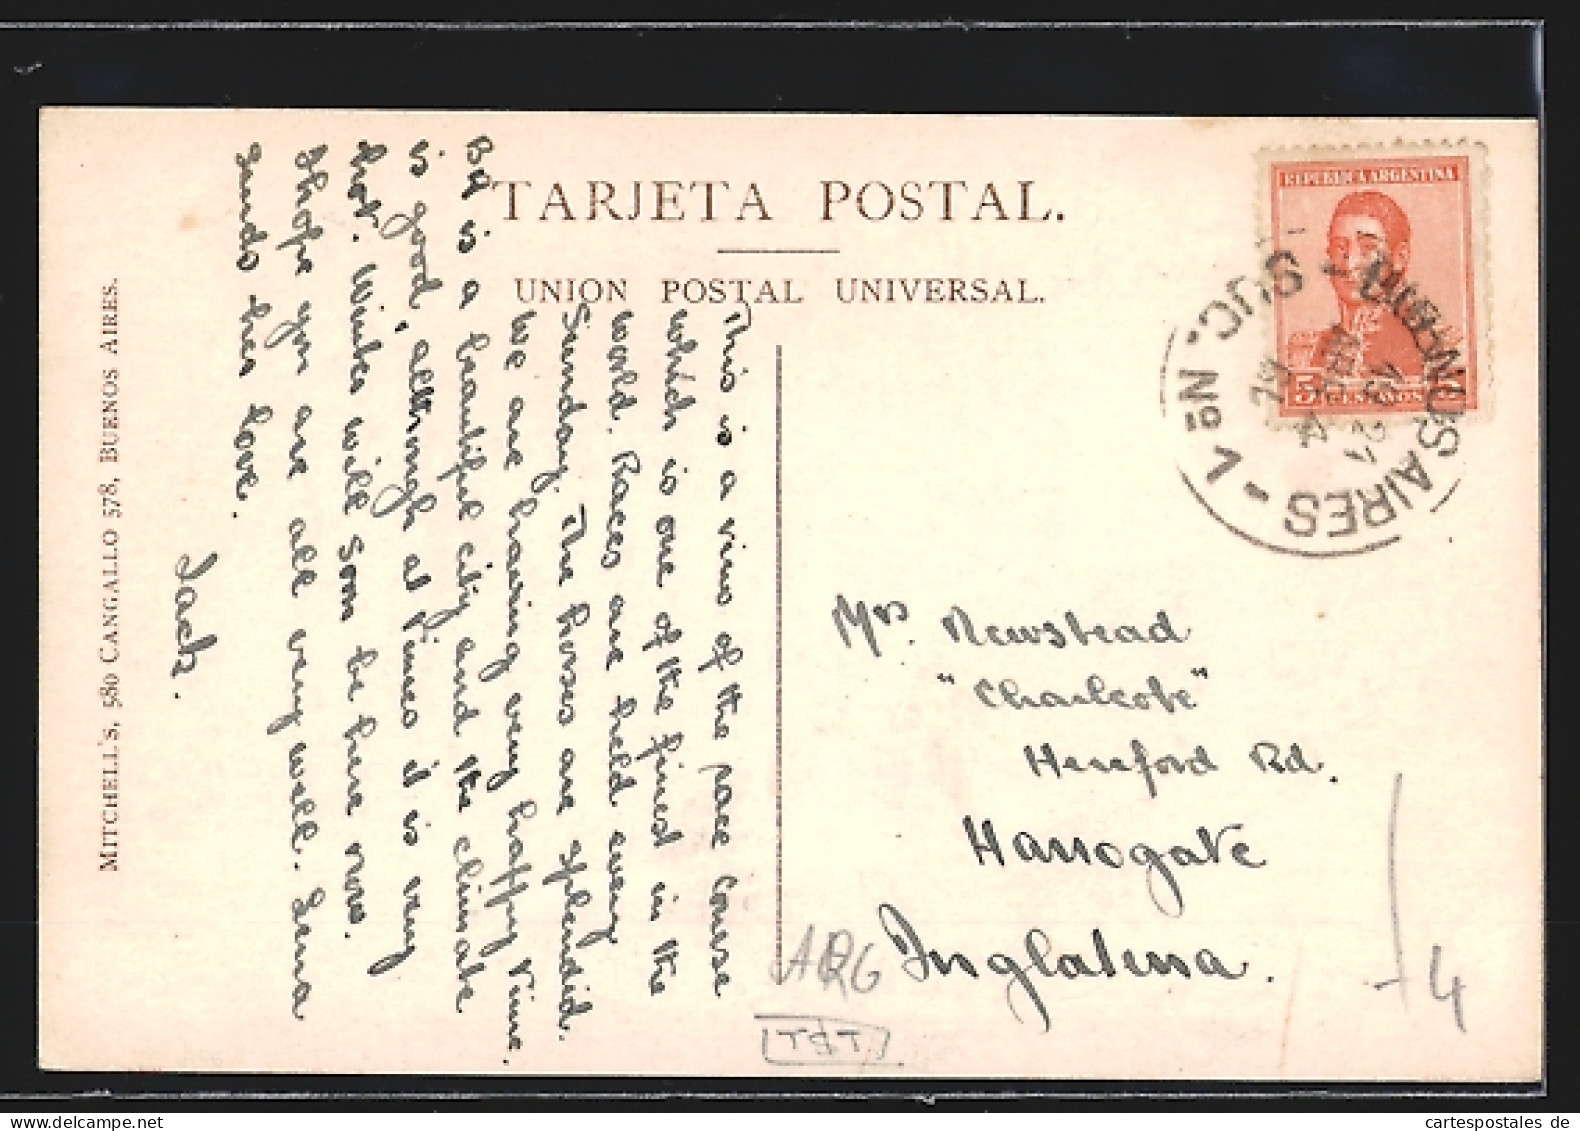 TARJETA POSTAL.
UNION POSTAL UNIVERSAL.
This is a view of the race course
which is one of the finest in the
world. Races are held every
Sunday. The horses are splendid.
We are having very happy time.
BA is a beautiful city and the climate
is good, although at times it is very
hot. Winter will soon be here now.
I hope you are all very well. Lena
sends her love.
Jack.
MITCHELL'S, 580 CANGALLO 578, BUENOS AIRES.
REPUBLICA ARGENTINA
5 CENTAVOS 5
BUENOS AIRES - SUC. Nº 1 -
ABR 4
19 21
Mrs. Newstead
"Charlcote"
Hereford Rd.
Harrogate
Inglaterra.
ARG
T&T
4
cartespostales de